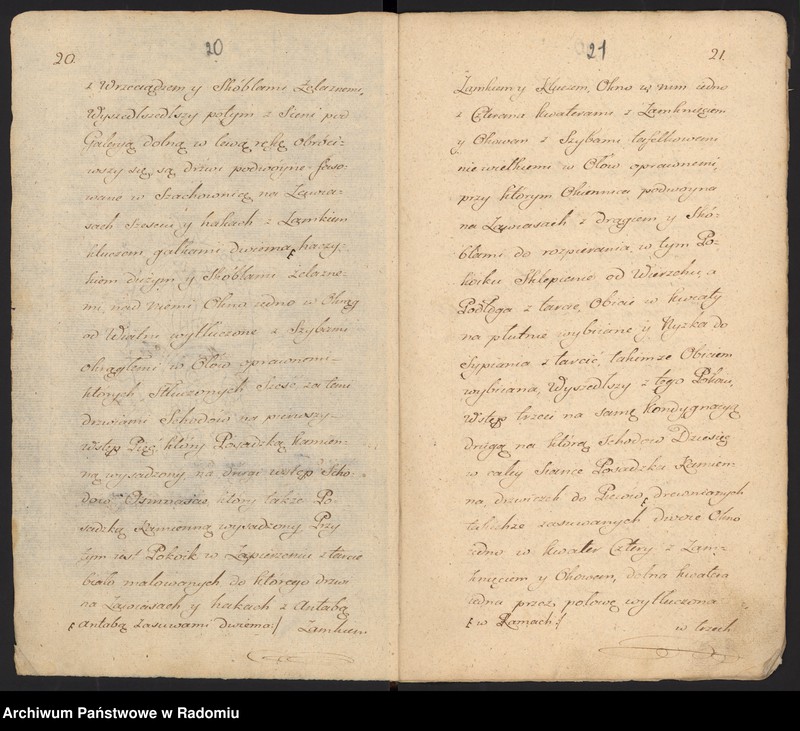 20.
20
z Wrzeciądzem y Skóblami Żelaznemi,
Wyszedłszedłszy potym z Sieni pod
Galeryą dolną w lewą rękę obróci-
wszy się, są drzwi podwoyne faso-
wane w Szachownicę na Zawia-
sach Sześciu y hakach z Zamkiem
kluczem gałkami dwiema, haczy-
kiem dużym y Skóblami żelazne-
mi, nad niemi Okno iedno w Okrąg
od Wiatru wytłuczone z Szybami
okrągłemi w Ołów oprawnemi
których Stłuczonych Sześć, za temi
drzwiami Schodow na pierwszy
Wstęp Pięć, który Posadzką kamien-
ną wysadzony, na drugi wstęp Scho-
dow Osmnaście, ktory także Po-
sadzką Kamienną wysadzony Przy
tym iest Pokoik w Zapierzeniu z tarcic
biało malowanych do ktorego drzwi
na Zawiasach y hakach z Antabą
Antabą zasuwami dwiema Zamkiem
21
21.
Zamkiem y Kluczem, Okno w nim iedno
z Czterma kwaterami z Zamknięciem
y Okowem z Szybami tafelkowemi
niewielkiemi w Ołow oprawnemi,
przy którym Okiennica podwoyna
na Zawiasach z Drągiem y Skó-
blami do rozpierania, w tym Po-
koiku Sklepienie od Wierzchu, a
Podłoga z tarcic, Obicie w kwiaty
na płutnie wybiiane y Nyżka do
Sypiania z tarcic, takimże Obiciem
wybiiana, Wyszedłszy z tego Pokoiu,
Wstęp trzeci na samę kondygnacyą
drugą na którą Schodow Dziesięć
w całey Stance Posadzka Kamien-
na, drzwiczek do Piecow drewnianych
zasuwanych dwoie Okno
iedno w kwater Cztery z Zam-
knięciem y Okowem, dolna kwatera
iedna przez połowę wytłuczona
w Ramach w trzech
Archiwum Państwowe w Radomiu